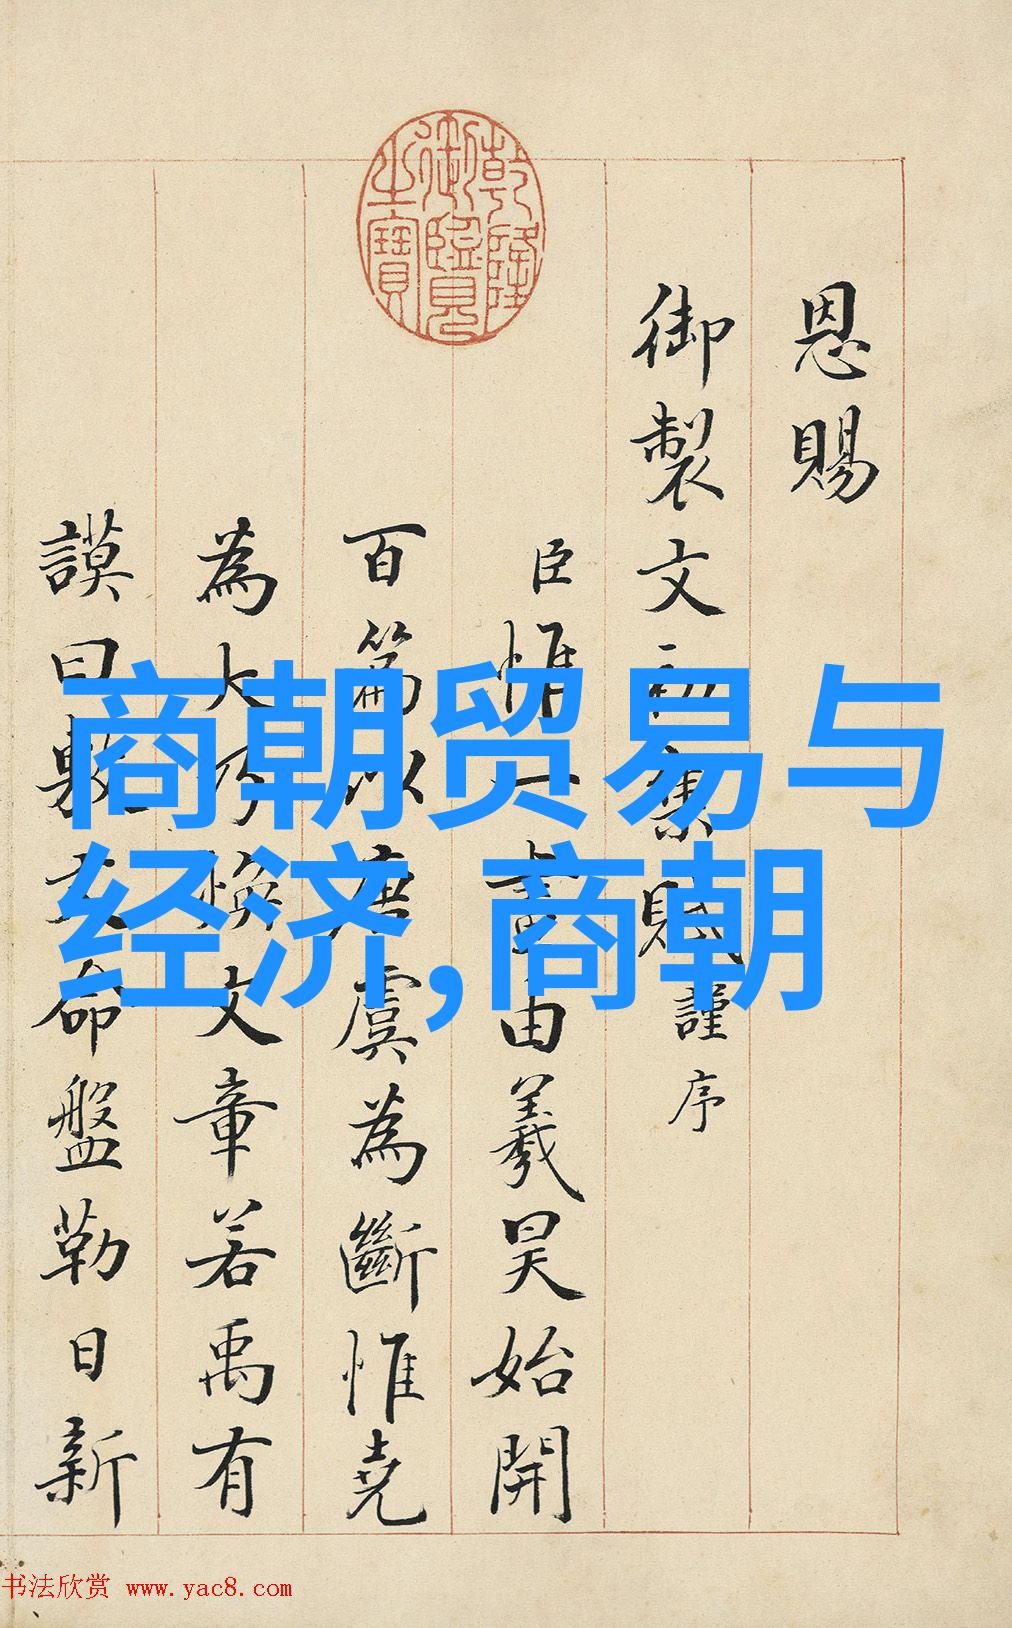 乾隆御覽之寶
恩賜
御製文初集賦謹序
臣惟一畫由羲昊始開
百篇以唐虞為斷惟堯
為大乃煥文章若禹有
謨曰敷文命盤勒日新
商朝贸易与
经济,商朝
书法欣赏 www.yac8.com